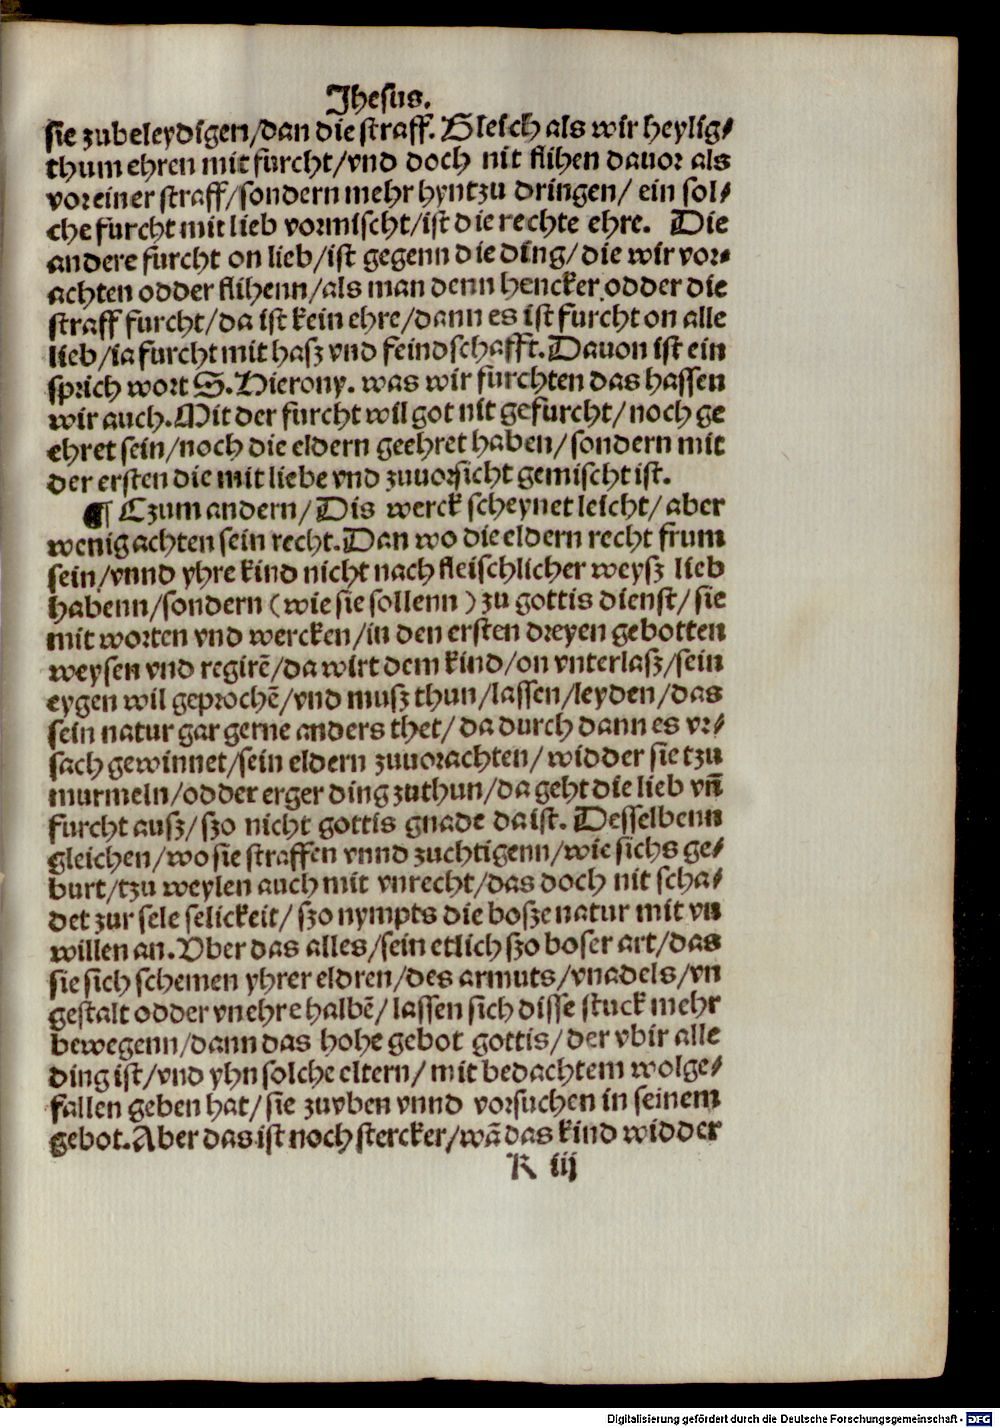 Jhesus.
sie zubeleydigen/dan die straff. Gleich als wir heylig⸗
thum ehren mit furcht/vnd doch nit flihen dauor als
vor einer straff/sondern mehr hyntzu dringen/ ein sol⸗
che furcht mit lieb vormischt/ist die rechte ehre. Die
andere furcht on lieb/ist gegenn die ding/die wir vor⸗
achten odder flihenn/als man denn hencker odder die
straff furcht/da ist kein ehre/dann es ist furcht on alle
lieb/ia furcht mit hasz vnd feindschafft. Dauon ist ein
sprich wort S. Hierony. was wir furchten das hassen
wir auch. Mit der furcht wil got nit gefurcht/noch ge
ehret sein/noch die eldern geehret haben/sondern mit
der ersten die mit liebe vnd zuuorsicht gemischt ist.
¶ Czum andern/Dis werck scheynet leicht/aber
wenig achten sein recht. Dan wo die eldern recht frum
sein/vnnd yhre kind nicht nach fleischlicher weysz lieb
habenn/sondern (wie sie sollenn) zu gottis dienst/sie
mit worten vnd wercken/in den ersten dreyen gebotten
weysen vnd regirē/da wirt dem kind/on vnterlasz/sein
eygen wil geprochē/vnd musz thun/lassen/leyden/das
sein natur gar gerne anders thet/da durch dann es vr⸗
sach gewinnet/sein eldern zuuorachten/widder sie tzu
murmeln/odder erger ding zuthun/da geht die lieb vn̄
furcht ausz/szo nicht gottis gnade da ist. Desselbenn
gleichen/wo sie straffen vnnd zuchtigenn/wie sichs ge⸗
burt/tzu weylen auch mit vnrecht/das doch nit scha⸗
det zur sele selickeit/szo nympts die bosze natur mit vn
willen an. Vber das alles/sein etlich szo boser art/das
sie sich schemen yhrer eldren/des armuts/vnadels/vn
gestalt odder vnehre halbē/lassen sich disse stuck mehr
bewegenn/dann das hohe gebot gottis/der vbir alle
ding ist/vnd yhn solche eltern/mit bedachtem wolge⸗
fallen geben hat/sie zuvben vnnd vorsuchen in seinem
gebot. Aber das ist noch stercker/wā das kind widder
K iij
Digitalisierung gefördert durch die Deutsche Forschungsgemeinschaft - DFG